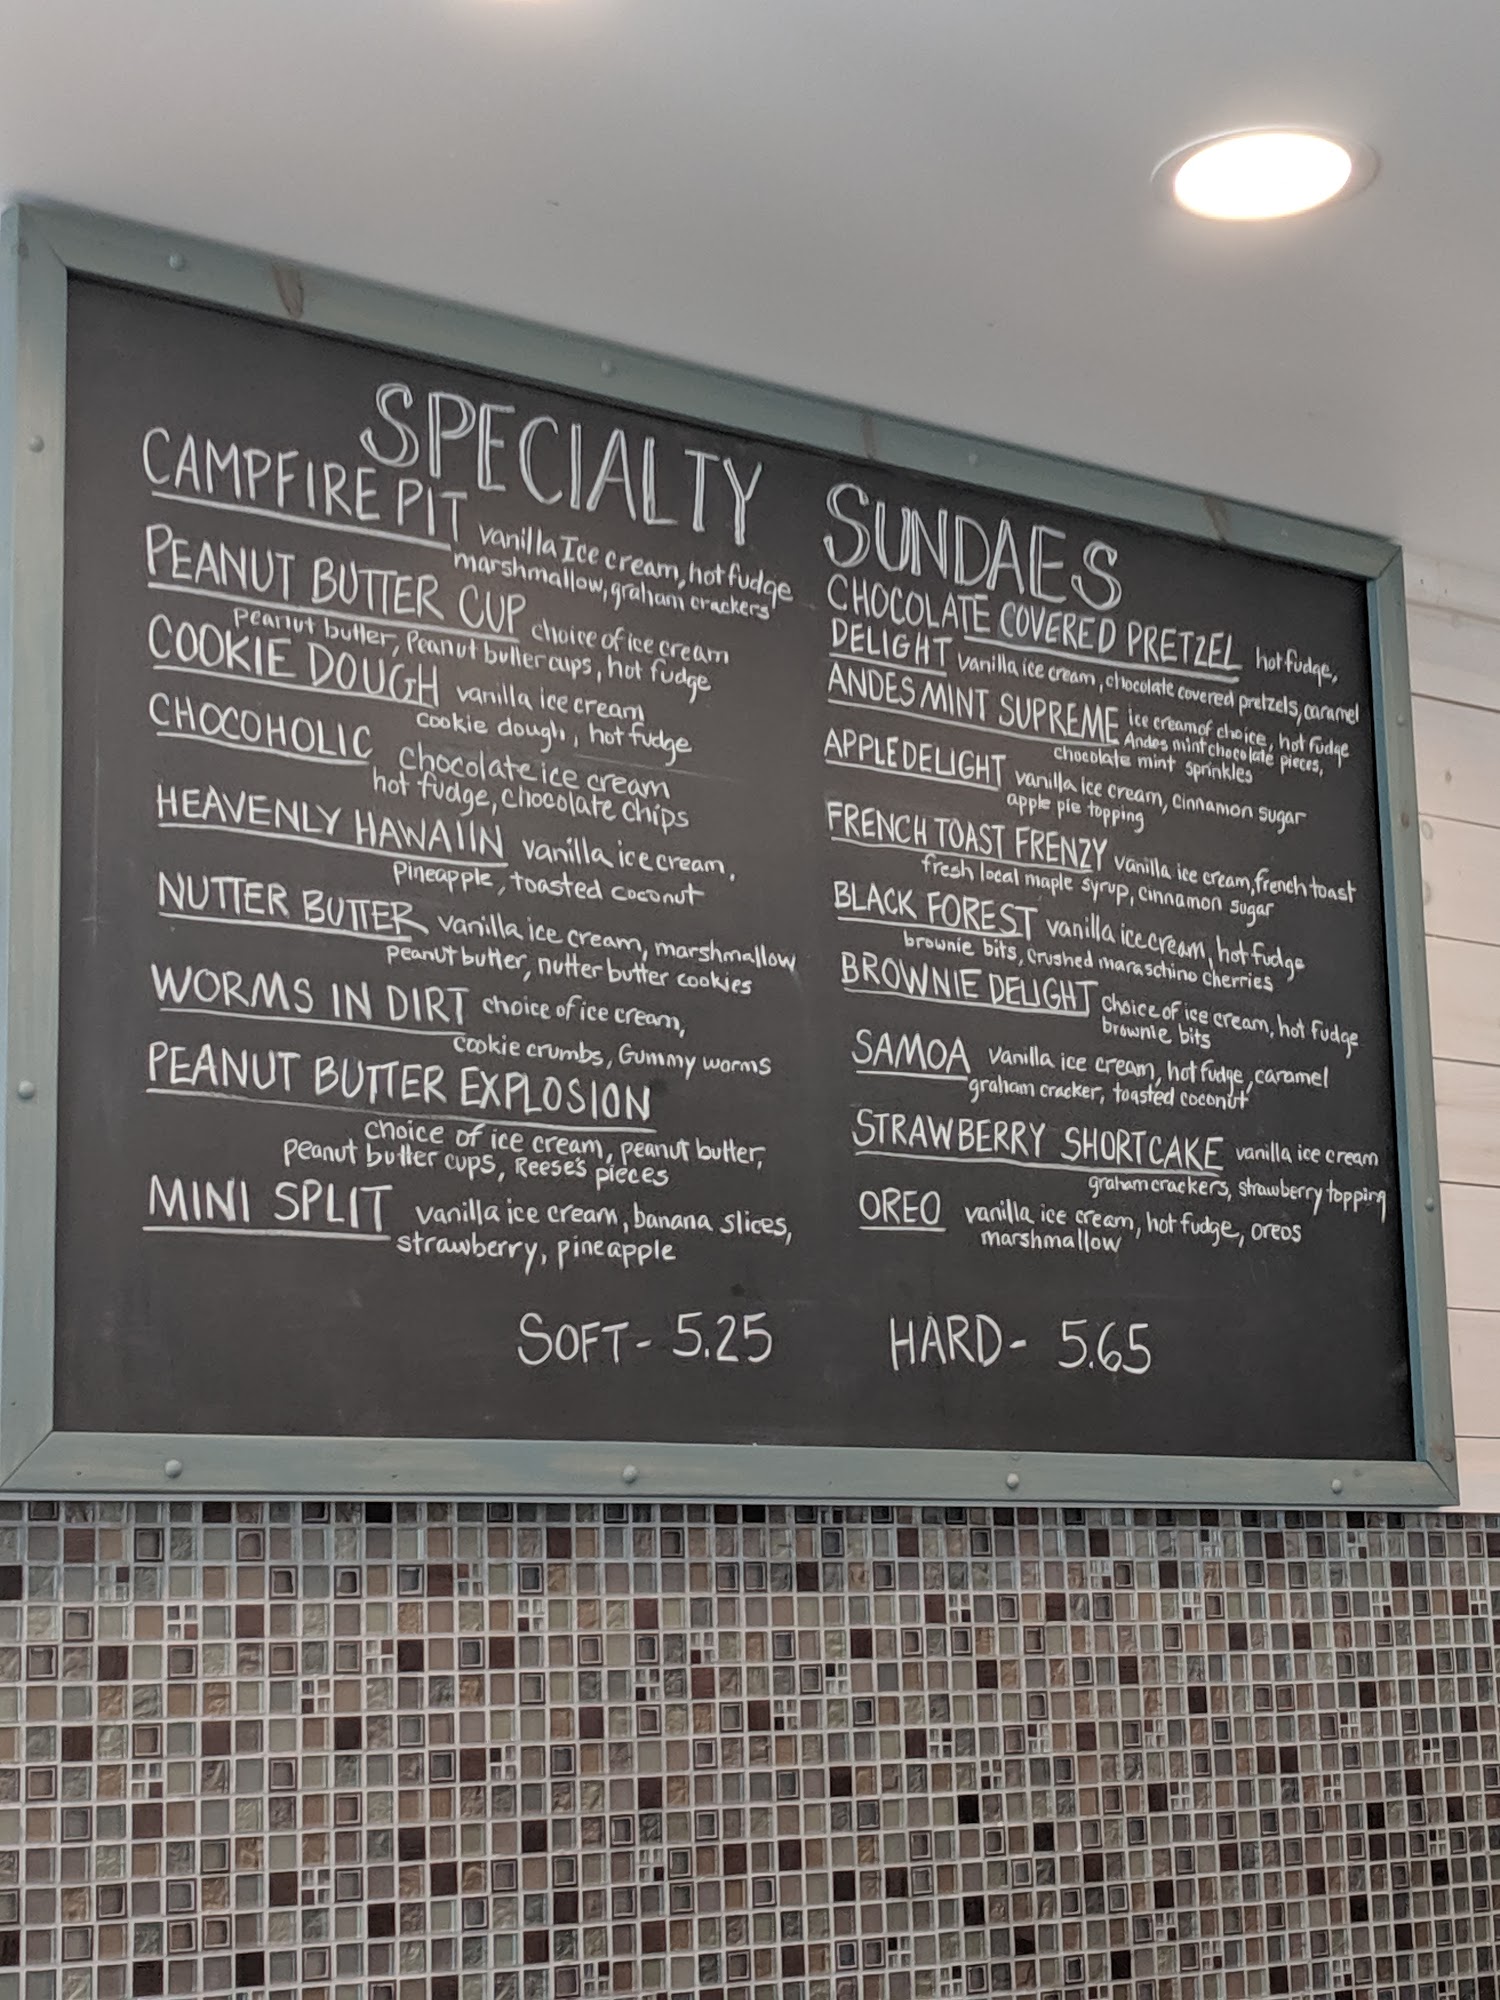 SPECIALTY SUNDAES
CAMPFIRE PIT vanilla Ice cream, hot fudge
marshmallow, graham crackers
PEANUT BUTTER CUP choice of ice cream
peanut butter, Peanut butter cups, hot fudge
COOKIE DOUGH vanilla ice cream
cookie dough, hot fudge
CHOCOHOLIC chocolate ice cream
hot fudge, chocolate chips
HEAVENLY HAWAIIN vanilla ice cream,
Pineapple, toasted coconut
NUTTER BUTTER vanilla ice cream, marshmallow
peanut butter, nutter butter cookies
WORMS IN DIRT choice of ice cream,
cookie crumbs, Gummy worms
PEANUT BUTTER EXPLOSION
choice of ice cream, peanut butter,
peanut butter cups, Reese's pieces
MINI SPLIT vanilla ice cream, banana slices,
strawberry, pineapple
CHOCOLATE COVERED PRETZEL hot fudge,
DELIGHT vanilla ice cream, chocolate covered pretzels, caramel
ANDES MINT SUPREME ice cream of choice, hot fudge
Andes mint chocolate pieces,
chocolate mint sprinkles
APPLE DELIGHT vanilla ice cream, cinnamon sugar
apple pie topping
FRENCH TOAST FRENZY vanilla ice cream, french toast
fresh local maple syrup, cinnamon sugar
BLACK FOREST vanilla ice cream, hot fudge
brownie bits, crushed maraschino cherries
BROWNIE DELIGHT choice of ice cream, hot fudge
brownie bits
SAMOA vanilla ice cream, hot fudge, caramel
graham cracker, toasted coconut
STRAWBERRY SHORTCAKE vanilla ice cream
graham crackers, strawberry topping
OREO vanilla ice cream, hot fudge, oreos
marshmallow
SOFT- 5.25 HARD- 5.65